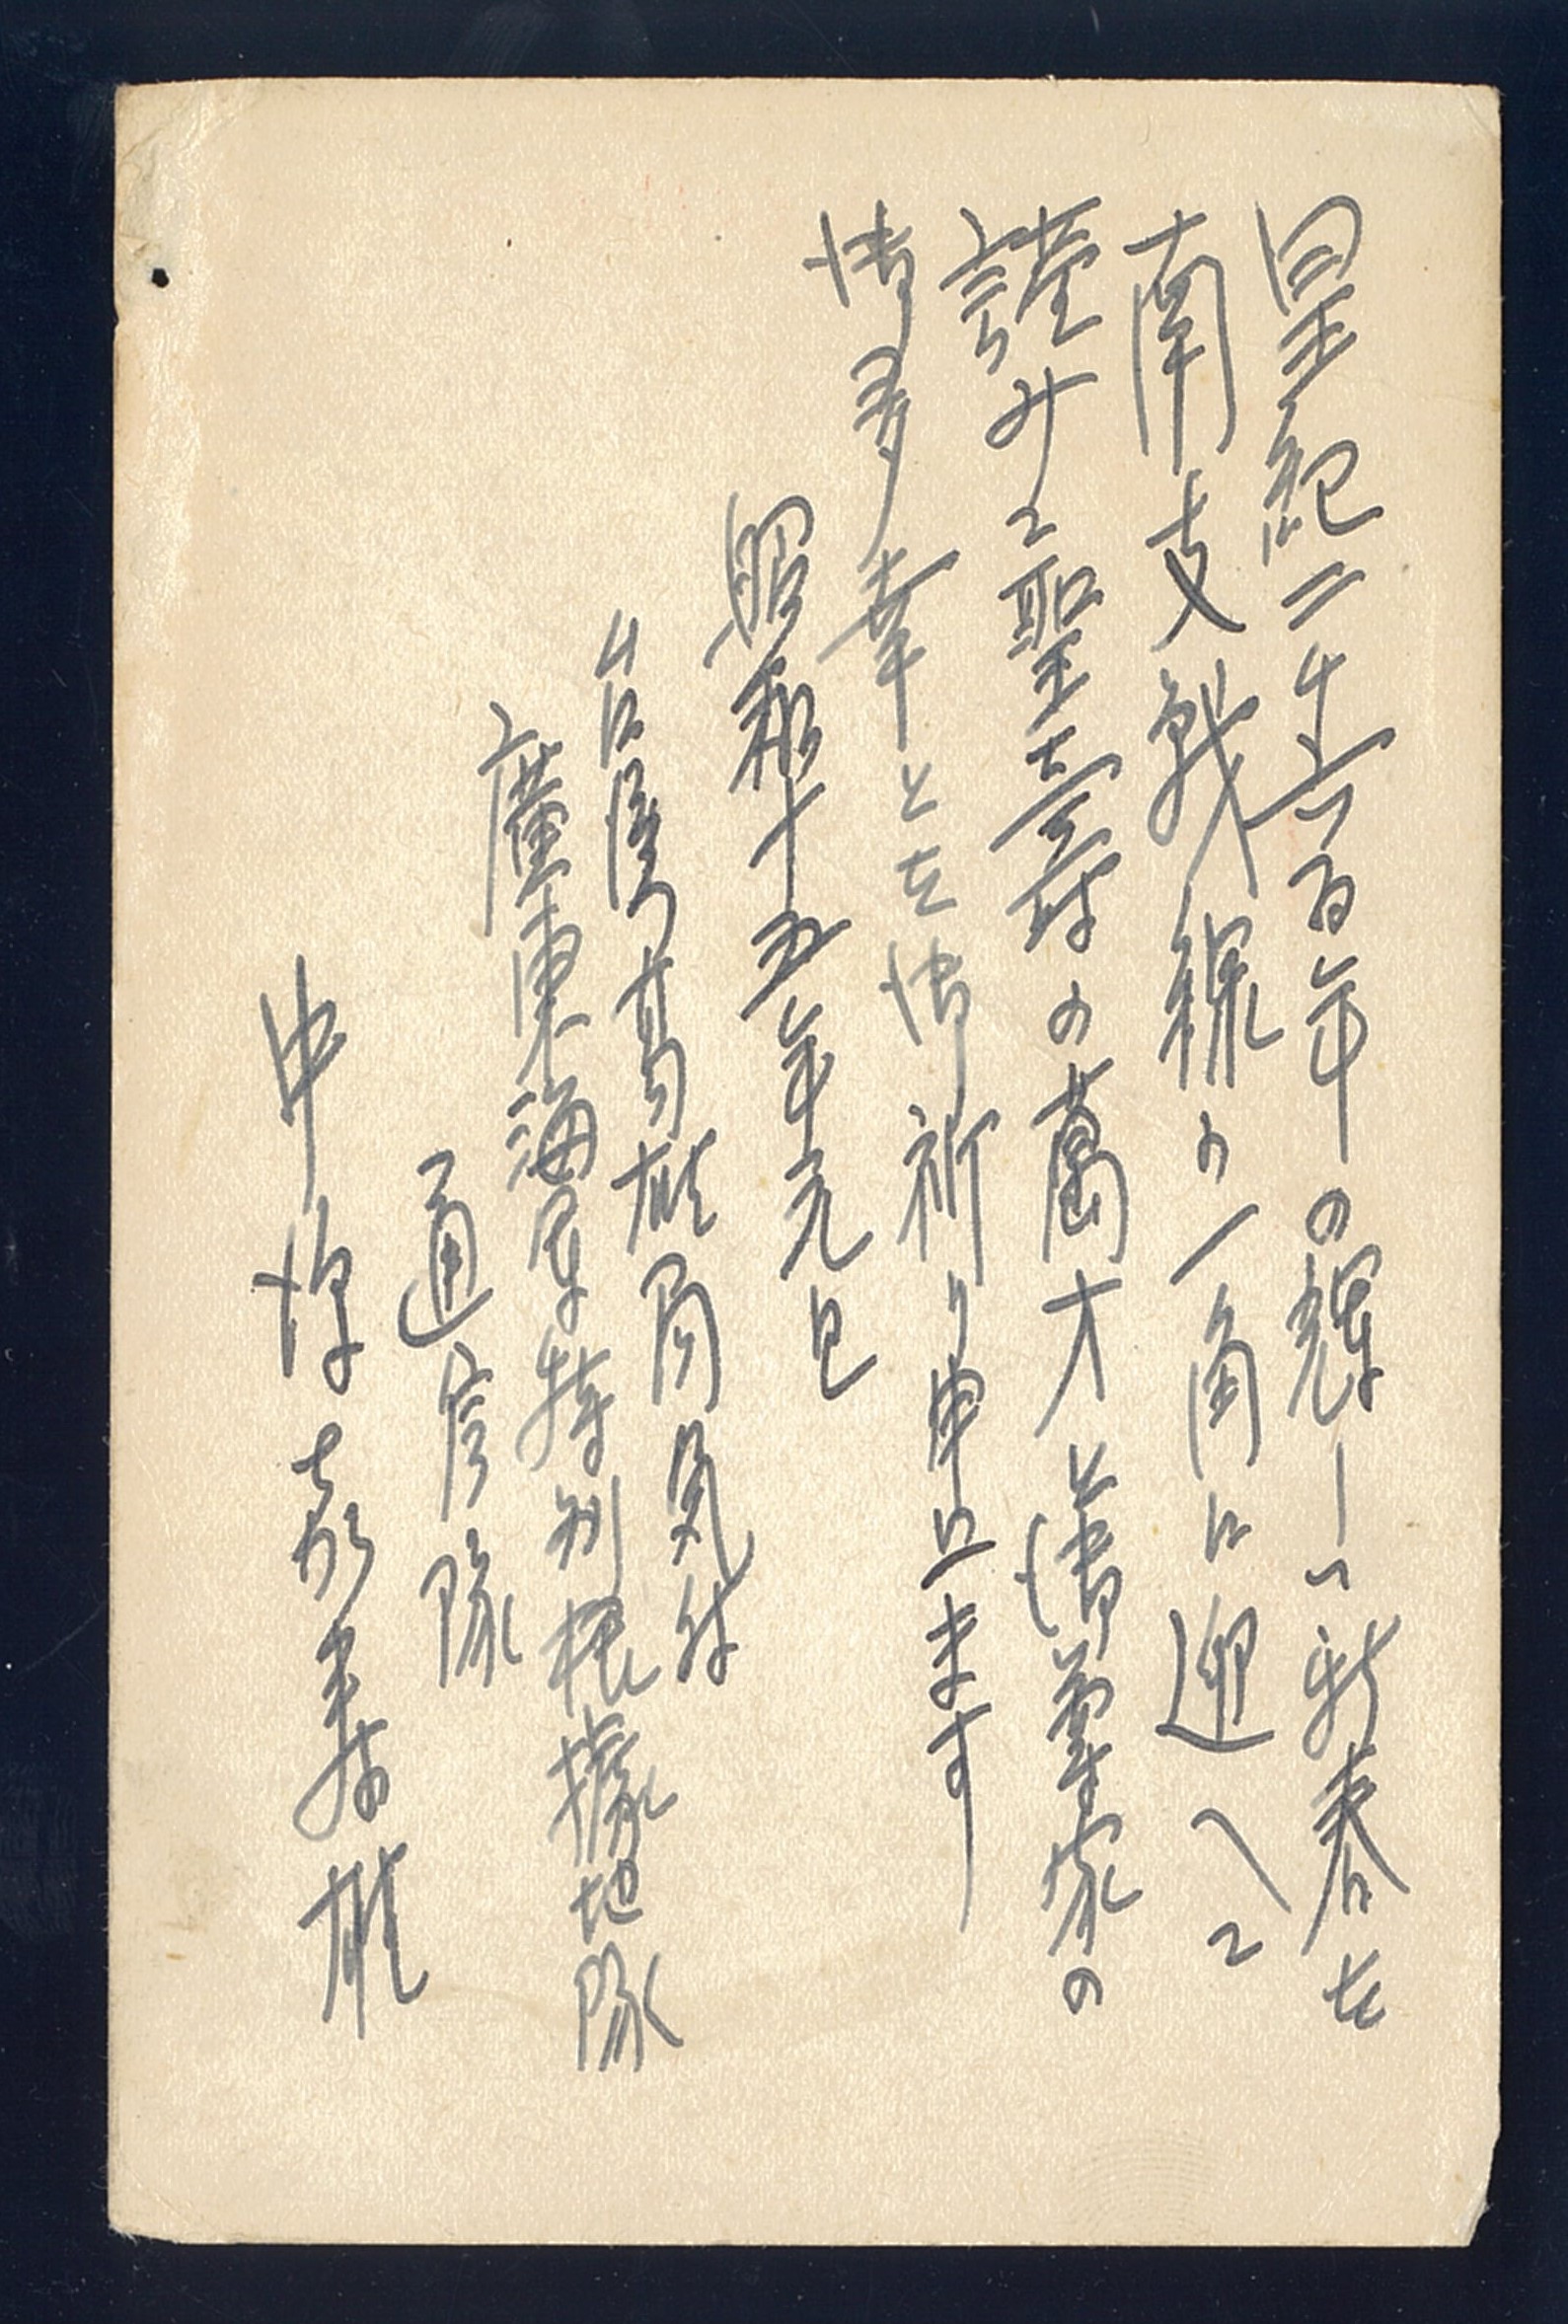 皇紀二千六百年の輝しい新春を
南支戦線の一角に迎へて
謹みて聖壽の萬才と御尊家の
御多幸とを御祈り申上ます
昭和十五年元旦
台湾高雄局気付
廣東海軍特別根據地隊
通信隊
中 雄